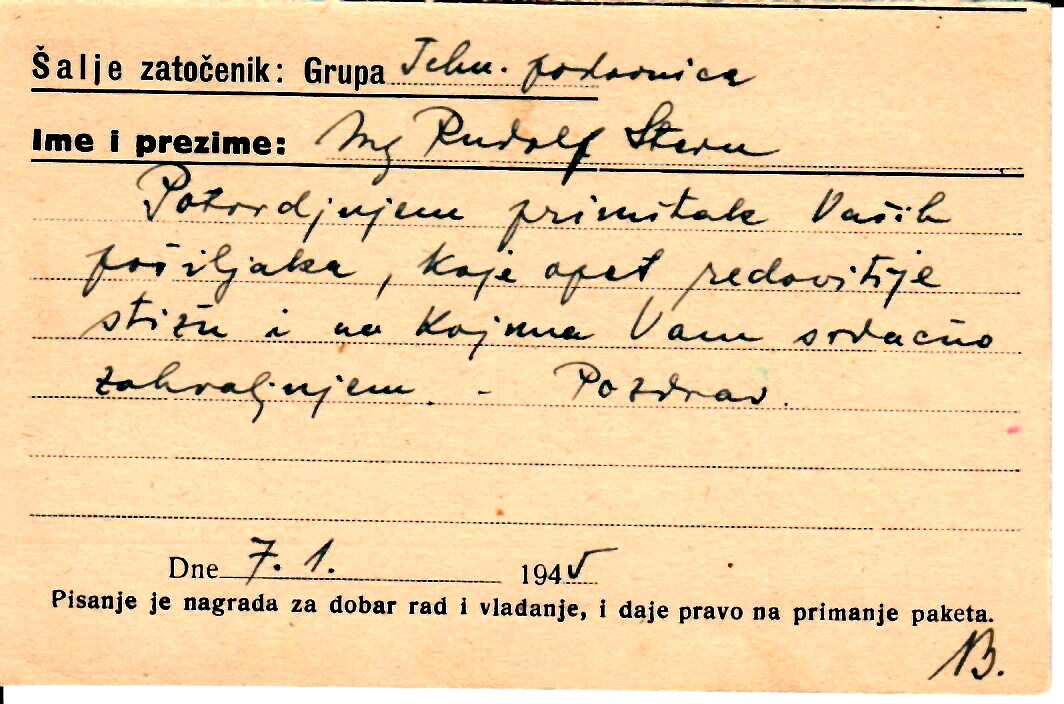 Šalje zatočenik: Grupa Tehn. podovnica
Ime i prezime: Ing Rudolf Stern
Potvrdjujem primitak Vaših
pošiljaka, koje opet redovitije
stižu i na kojima Vam srdačno
zahvaljujem. - Pozdrav.
Dne 7. 1. 1945
Pisanje je nagrada za dobar rad i vladanje, i daje pravo na primanje paketa.
B.